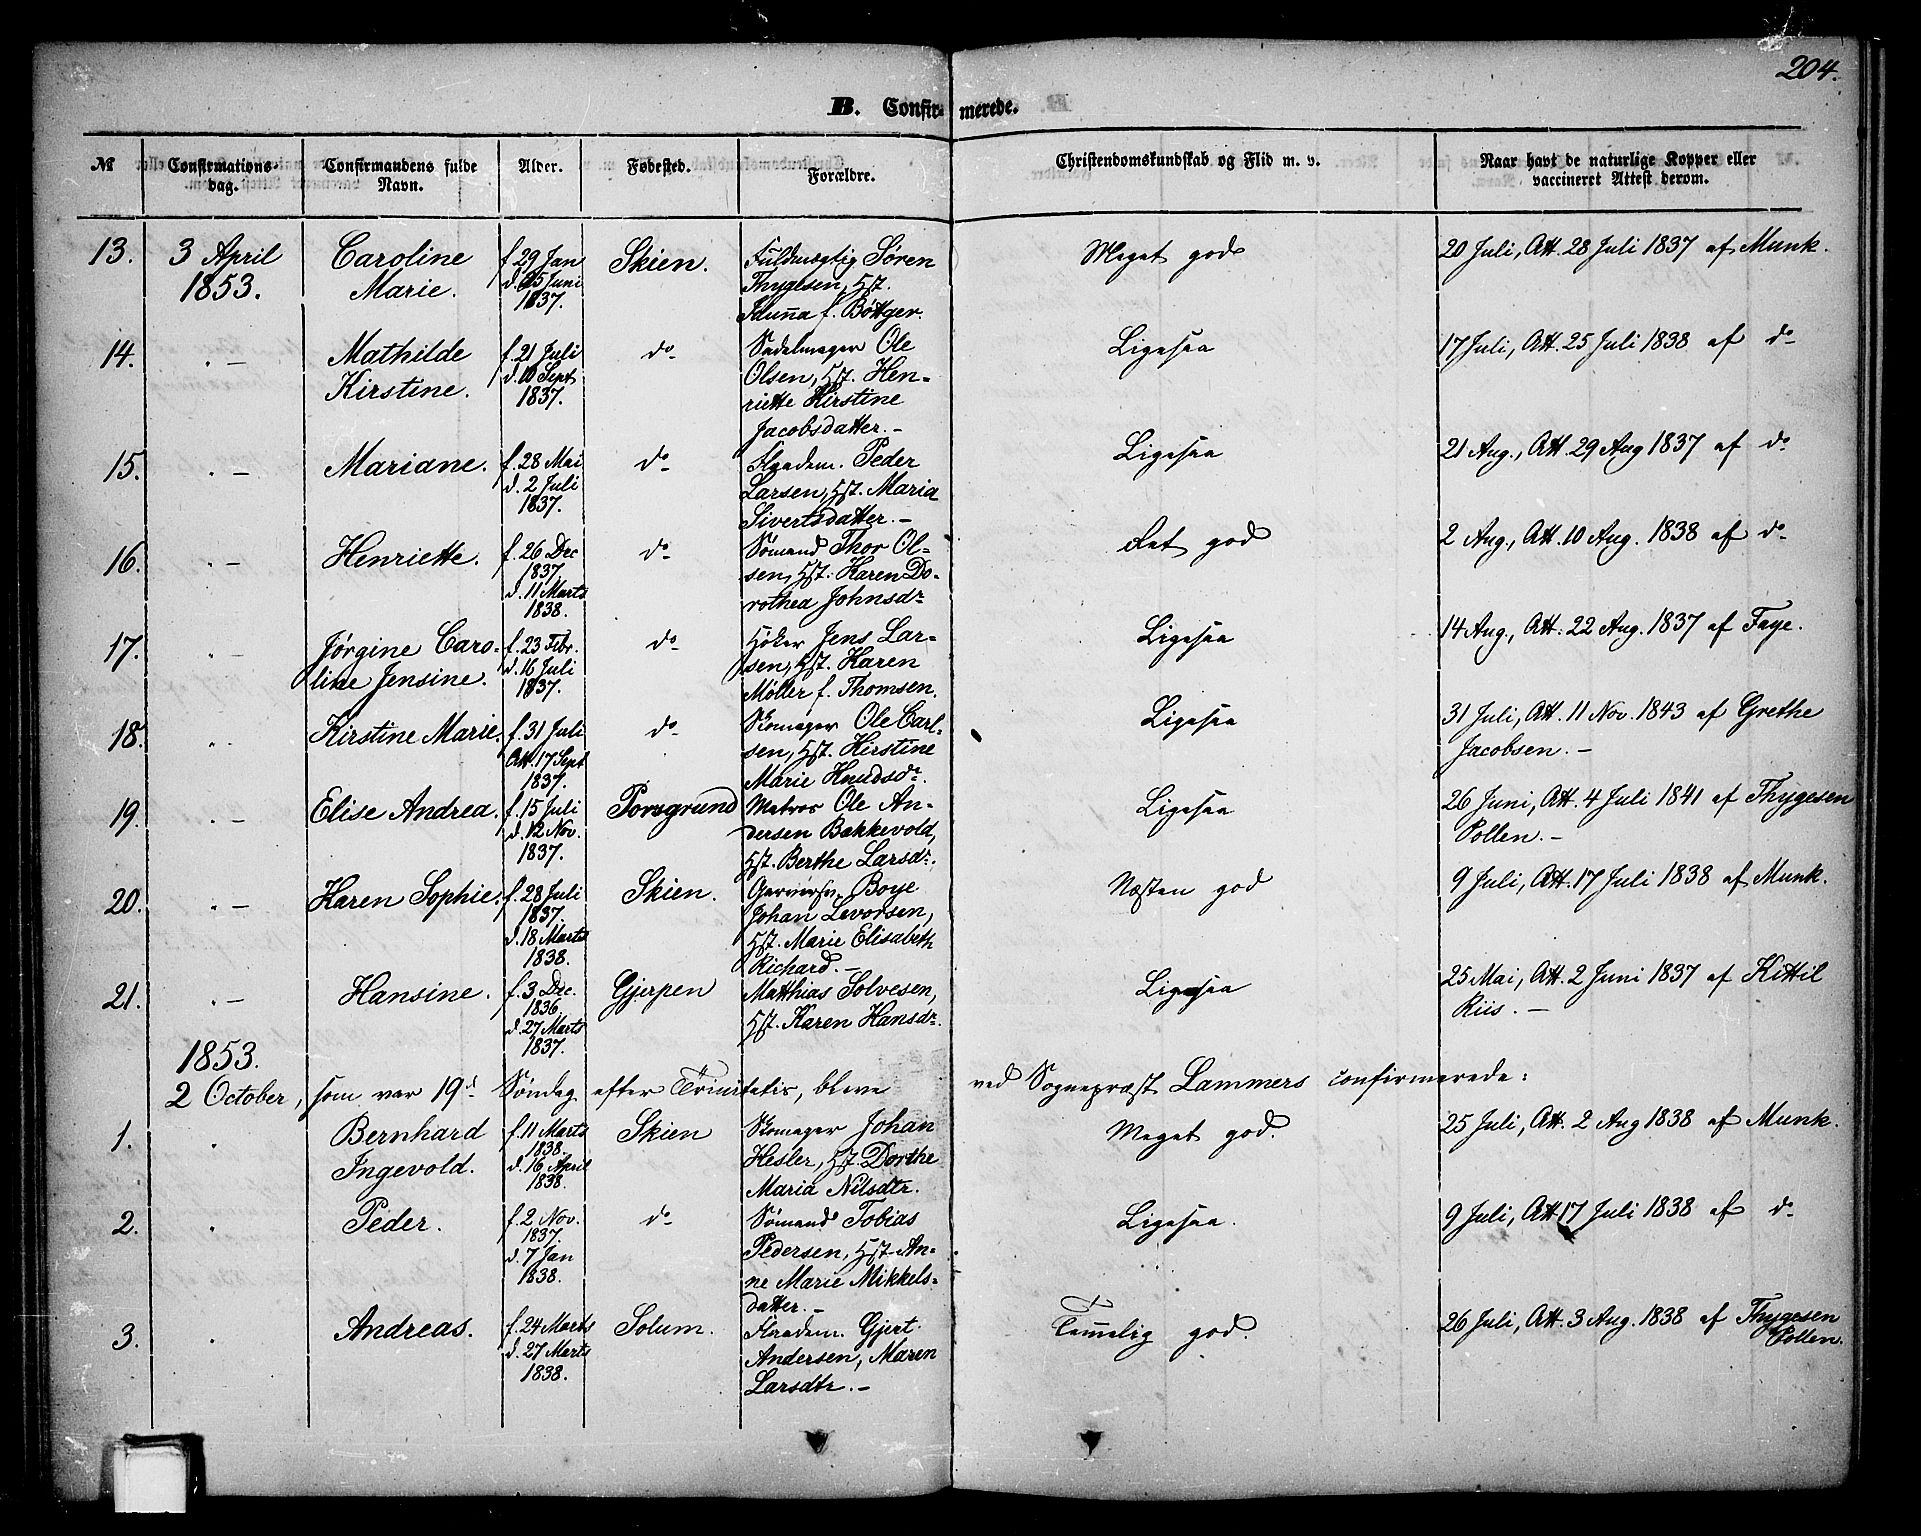 204.
B. Confirmerede.
№ Confirmations-dag. Confirmandens fulde Navn. Alder. Fødested. Forældre. Christendomskundskab og Flid m. v. Naar havt de naturlige Kopper eller vaccineret Attest derom.
13. 3 April 1853. Caroline Marie. f. 29 Jan d. 25 Juni 1837. Skien. Fuldmægtig Søren Thygesen, Hst. Iduña f. Böttger. Meget god 20 Juli, Att. 28 Juli 1837 af Munk.
14. " — Mathilde Kirstine. f. 21 Juli d. 10 Sept 1837. do Sadelmager Ole Olsen, Hst. Henriette Kirstine Jacobsdatter. — Ligesaa 17 Juli, Att. 25 Juli 1838 af do
15. " — Mariane. f. 28 Mai d. 2 Juli 1837. do Flaadem. Peder Larsen, Hst. Maria Sivertsdatter. — Ligesaa 21 Aug., Att. 29 Aug 1837 af do
16. " — Henriette. f. 26 Dec 1837 d. 11 Marts 1838. do Sømand Thor Olsen, Hst. Karen Dorothea Johnsdr Ret god 2 Aug., Att. 10 Aug. 1838 af do
17. " — Jørgine Caroline Jensine. f. 23 Febr. d. 16 Juli 1837. do Høker Jens Larsen, Hst. Karen Møller f. Thomsen. Ligesaa 14 Aug., Att. 22 Aug. 1837 af Faye.
18. " — Kirstine Marie. f. 31 Juli Att. 17 Sept 1837. do Skomager Ole Carlsen, Hst. Kirstine Marie Knudsdr. Ligesaa 31 Juli, Att. 11 Nov. 1843 af Grethe Jacobsen. —
19. " — Elise Andrea. f. 15 Juli d. 12 Nov. 1837. Porsgrund Matros Ole Andersen Bakkevold, Hst. Berthe Larsdr. Ligesaa 26 Juni, Att. 4 Juli 1841 af Thygesen Pollen. —
20. " — Karen Sophie. f. 28 Juli 1837. d. 18 Marts 1838. Skien. Boye Johan Levorsen, Hst. Marie Elisabeth Richard. — Næsten god 9 Juli, Att. 17 Juli 1838 af Munk.
21. " — Hansine. f. 3 Dec. 1836 d. 27 Marts 1837. Gjerpen Matthias Solvesen, Hst. Karen Hansdr. Ligesaa 25 Mai, Att. 2 Juni 1837 af Kittil Riis. —
1853.
2 October, som var 19d Søndag efter Trinitatis, bleve ved Sognepræst Lammers confirmerede:
1. " Bernhard Ingevold. f. 11 Marts 1838. d. 16 April 1838. Skien Skomager Johan Hesler, Hst. Dorthe Maria Nilsdtr. Meget god. 25 Juli, Att. 2 Aug 1838 af Munk.
2. " Peder. f. 2 Nov. 1837. d. 7 Jan 1838. do Sømand Tobias Pedersen, Hst. Anne Marie Mikkelsdatter. — Ligesaa. 9 Juli, Att. 17 Juli 1838 af do
3. " Andreas. f. 24 Marts d. 27 Marts 1838. Solum. Flaadem. Gjert Andersen, Maren Larsdtr. — Temelig god. 26 Juli, Att. 3 Aug. 1838 af Thygesen Pollen.